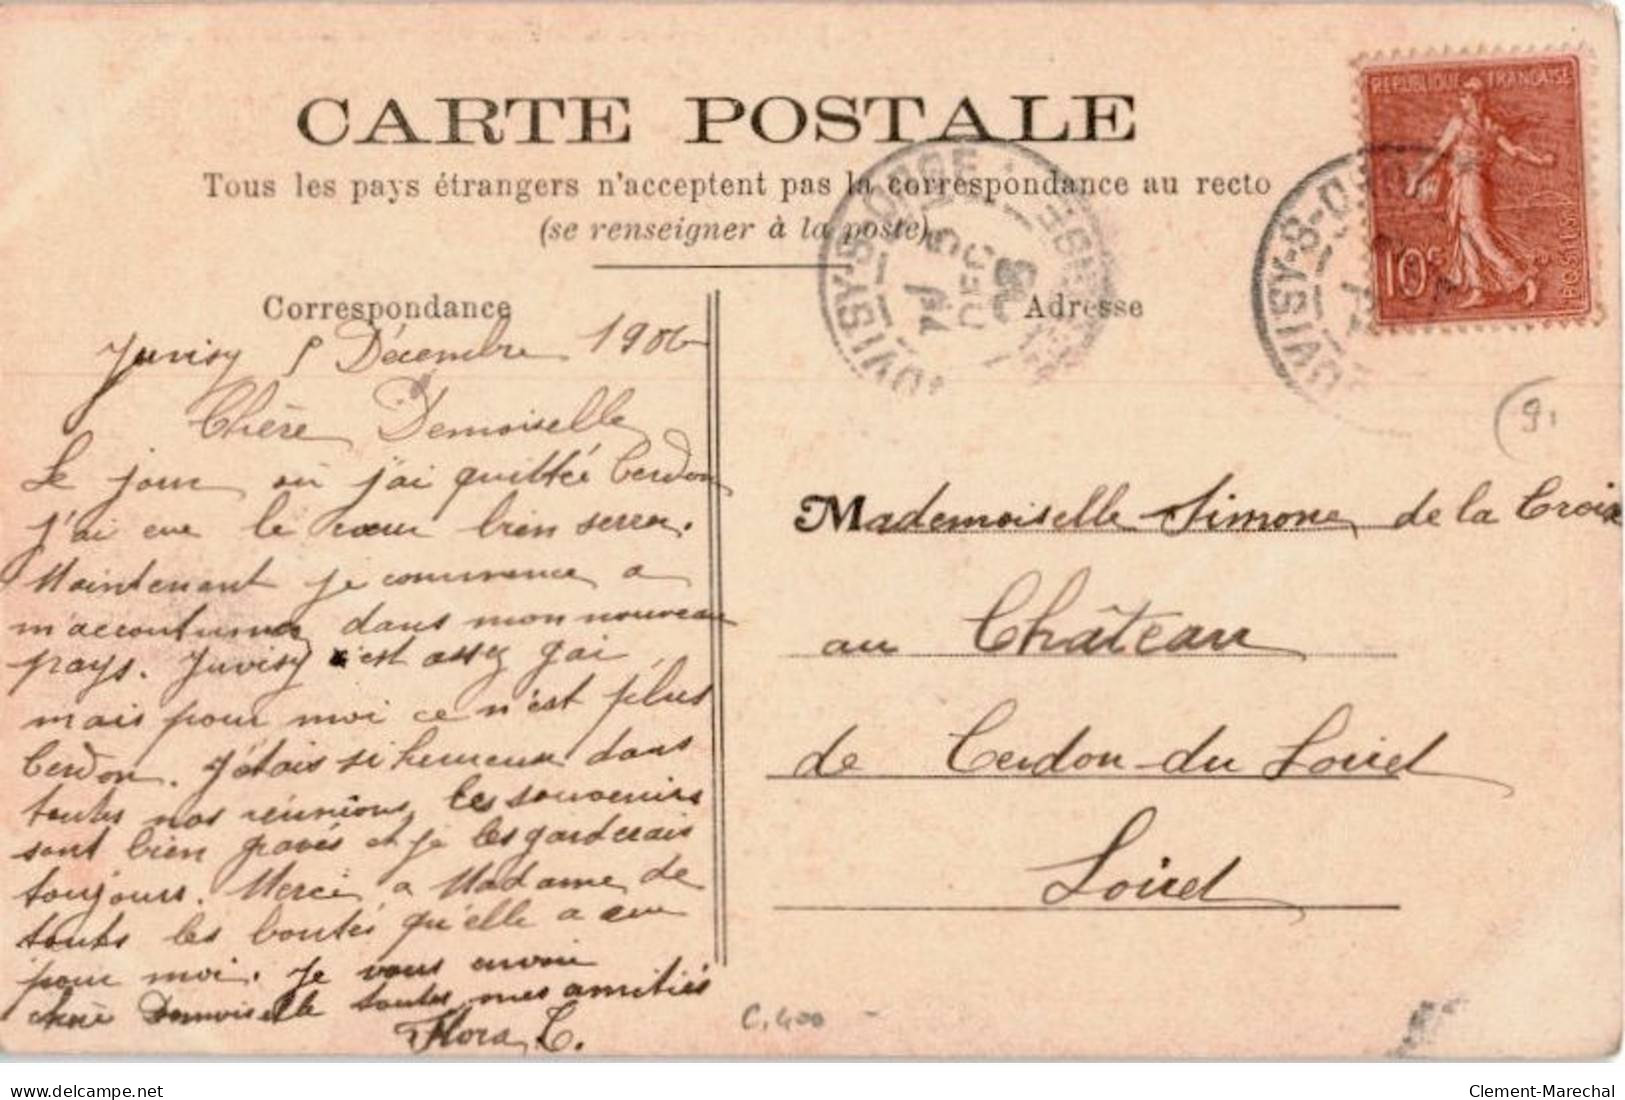 CARTE POSTALE
Tous les pays étrangers n'acceptent pas la correspondance au recto
(se renseigner à la poste)
REPUBLIQUE FRANÇAISE
10c
POSTES
JUVISY-S-ORGE
DEC
JUVISY-S-ORGE
Correspondance
Juvisy 5 Décembre 1906
Chère Demoiselle
Le jour où j'ai quittée Cerdon
j'ai eue le cœur bien serrer.
Maintenant je commence a
m'accoutumer dans mon nouveau
pays. Juvisy c'est assez gai
mais pour moi ce n'est plus
Cerdon. J'étais si heureux dans
toutes nos réunions, les souvenirs
sont bien gravés et je les garderais
toujours. Merci a Madame de
touts les bontés qu'elle a eue
pour moi. Je vous envoie
chère Demoiselle toutes mes amitiés
Flora C.
Adresse
91
Mademoiselle Simone de la Croix
au Château
de Cerdon-du Loiret
Loiret
C.400
delcampe.net
Clement-Marechal